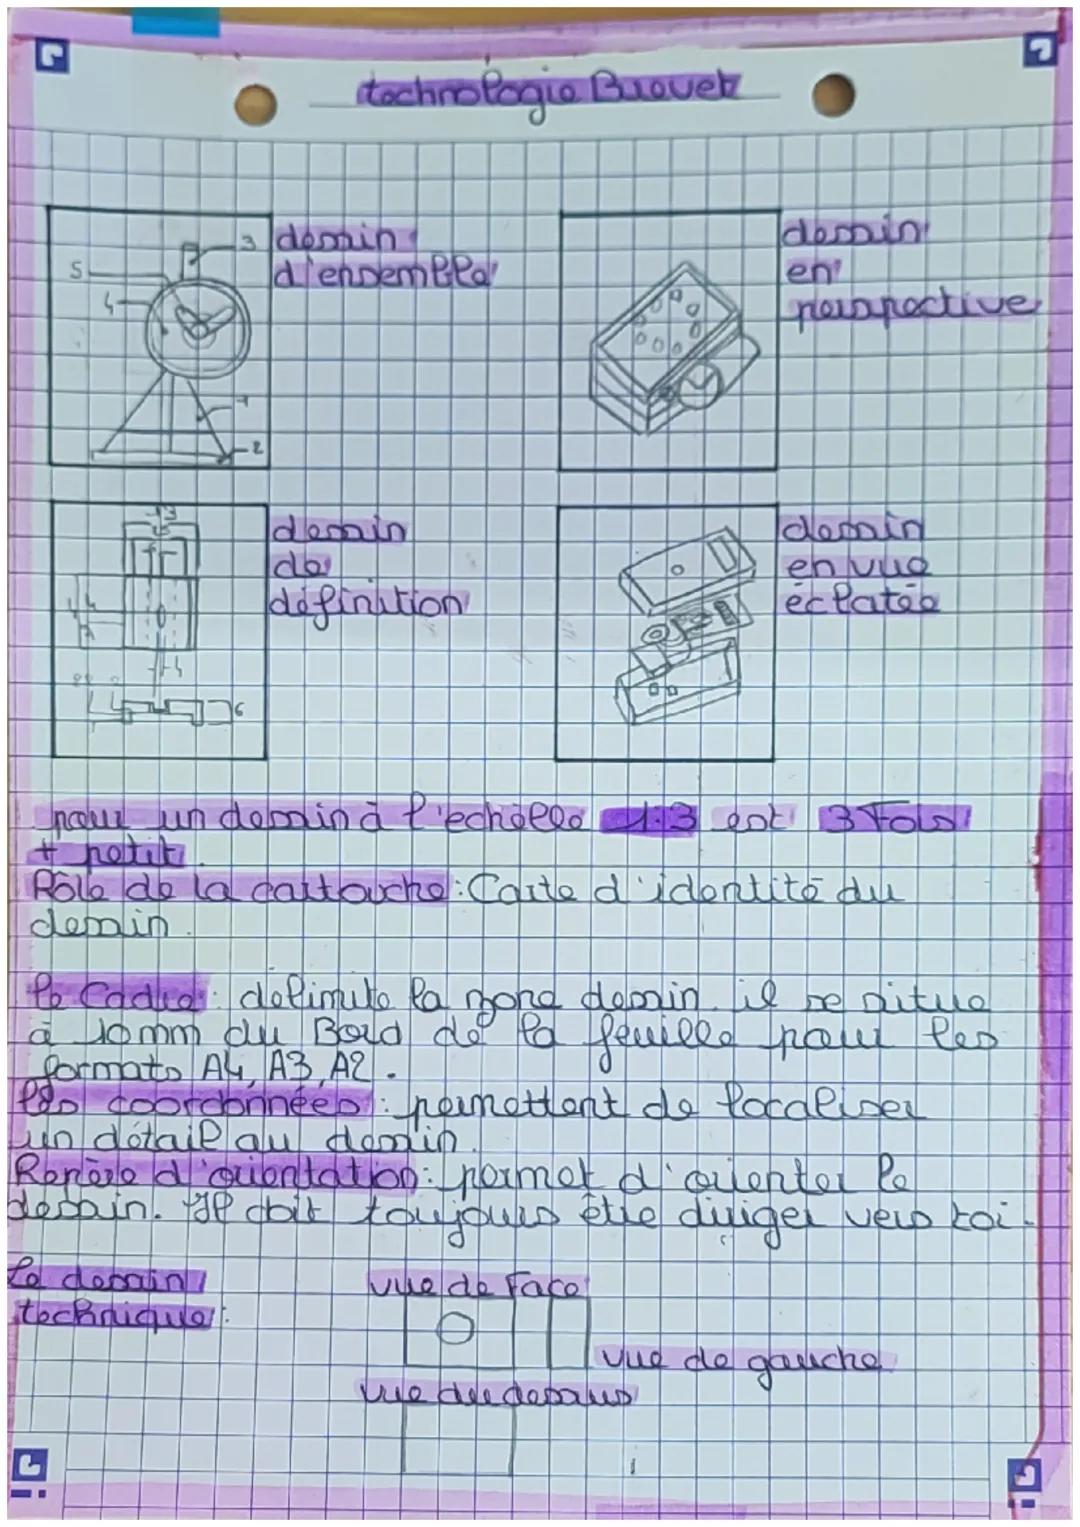 technologie Brevet
dessin
d'ensemble
3
5
4
1
2
dessin
en
perspective
dessin
de
définition
6
dessin
en vue
éclatée
pour un dessin à l'echelle 1:3 est 3 Fois
+ petit.
Rôle de la cartouche : Carte d'identité du
dessin.
le Cadre : délimite la zone dessin il se situe
à 10mm du Bord de la feuille pour les
formats A4, A3, A2.
les coordonnées : permettent de localiser
un détail au dessin.
Repère d'orientation : permet d'orienter le
dessin. Il doit toujours être diriger vers toi.
Le dessin
technique :
vue de Face
vue de gauche
vue du dessus